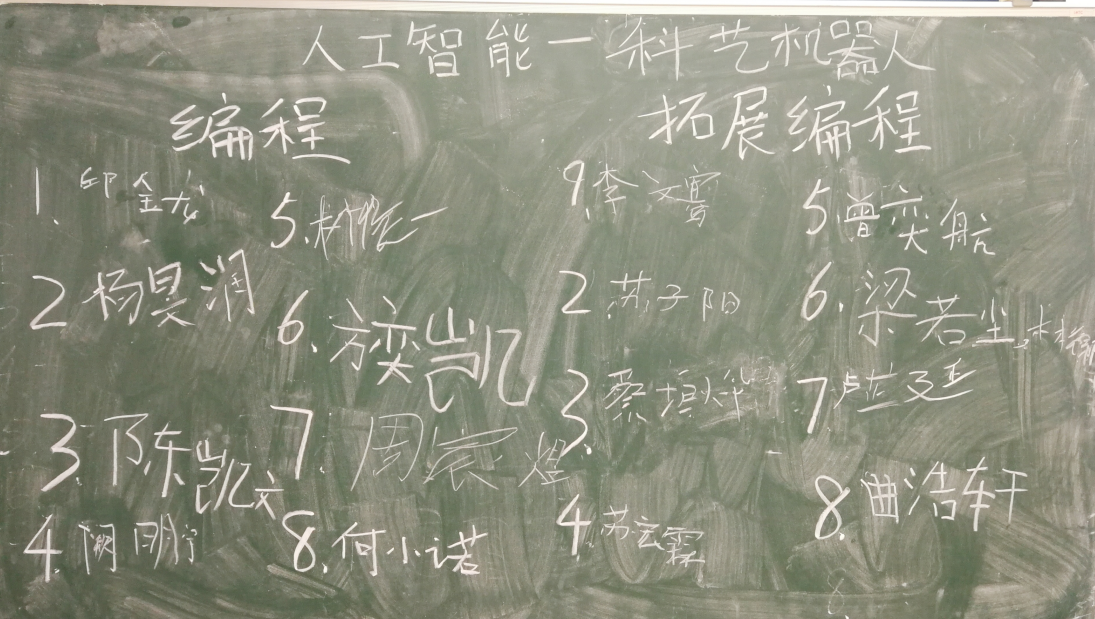 人工智能一科艺机器人
编程
1. 邱金龙
2 杨昊润
3 陈凯文
4. 阙
5. 林
6. 方奕凯
7. 周宸煜
8. 何小诺
拓展编程
9. 李文
2 苏子阳
3. 蔡垣烨
4. 苏云霖
5. 曾奕航
6. 梁若尘
7 卢芷延
8. 曲浩轩
8.